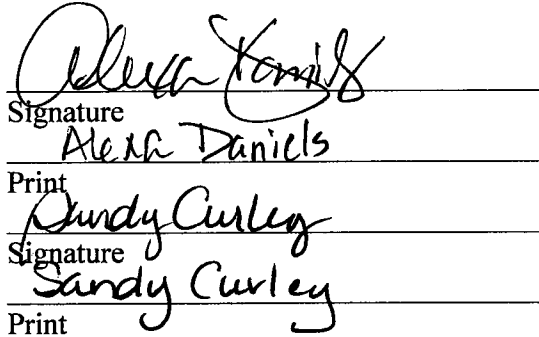 Alexa Daniels
Signature
Alexa Daniels
Print
Sandy Curley
Signature
Sandy Curley
Print